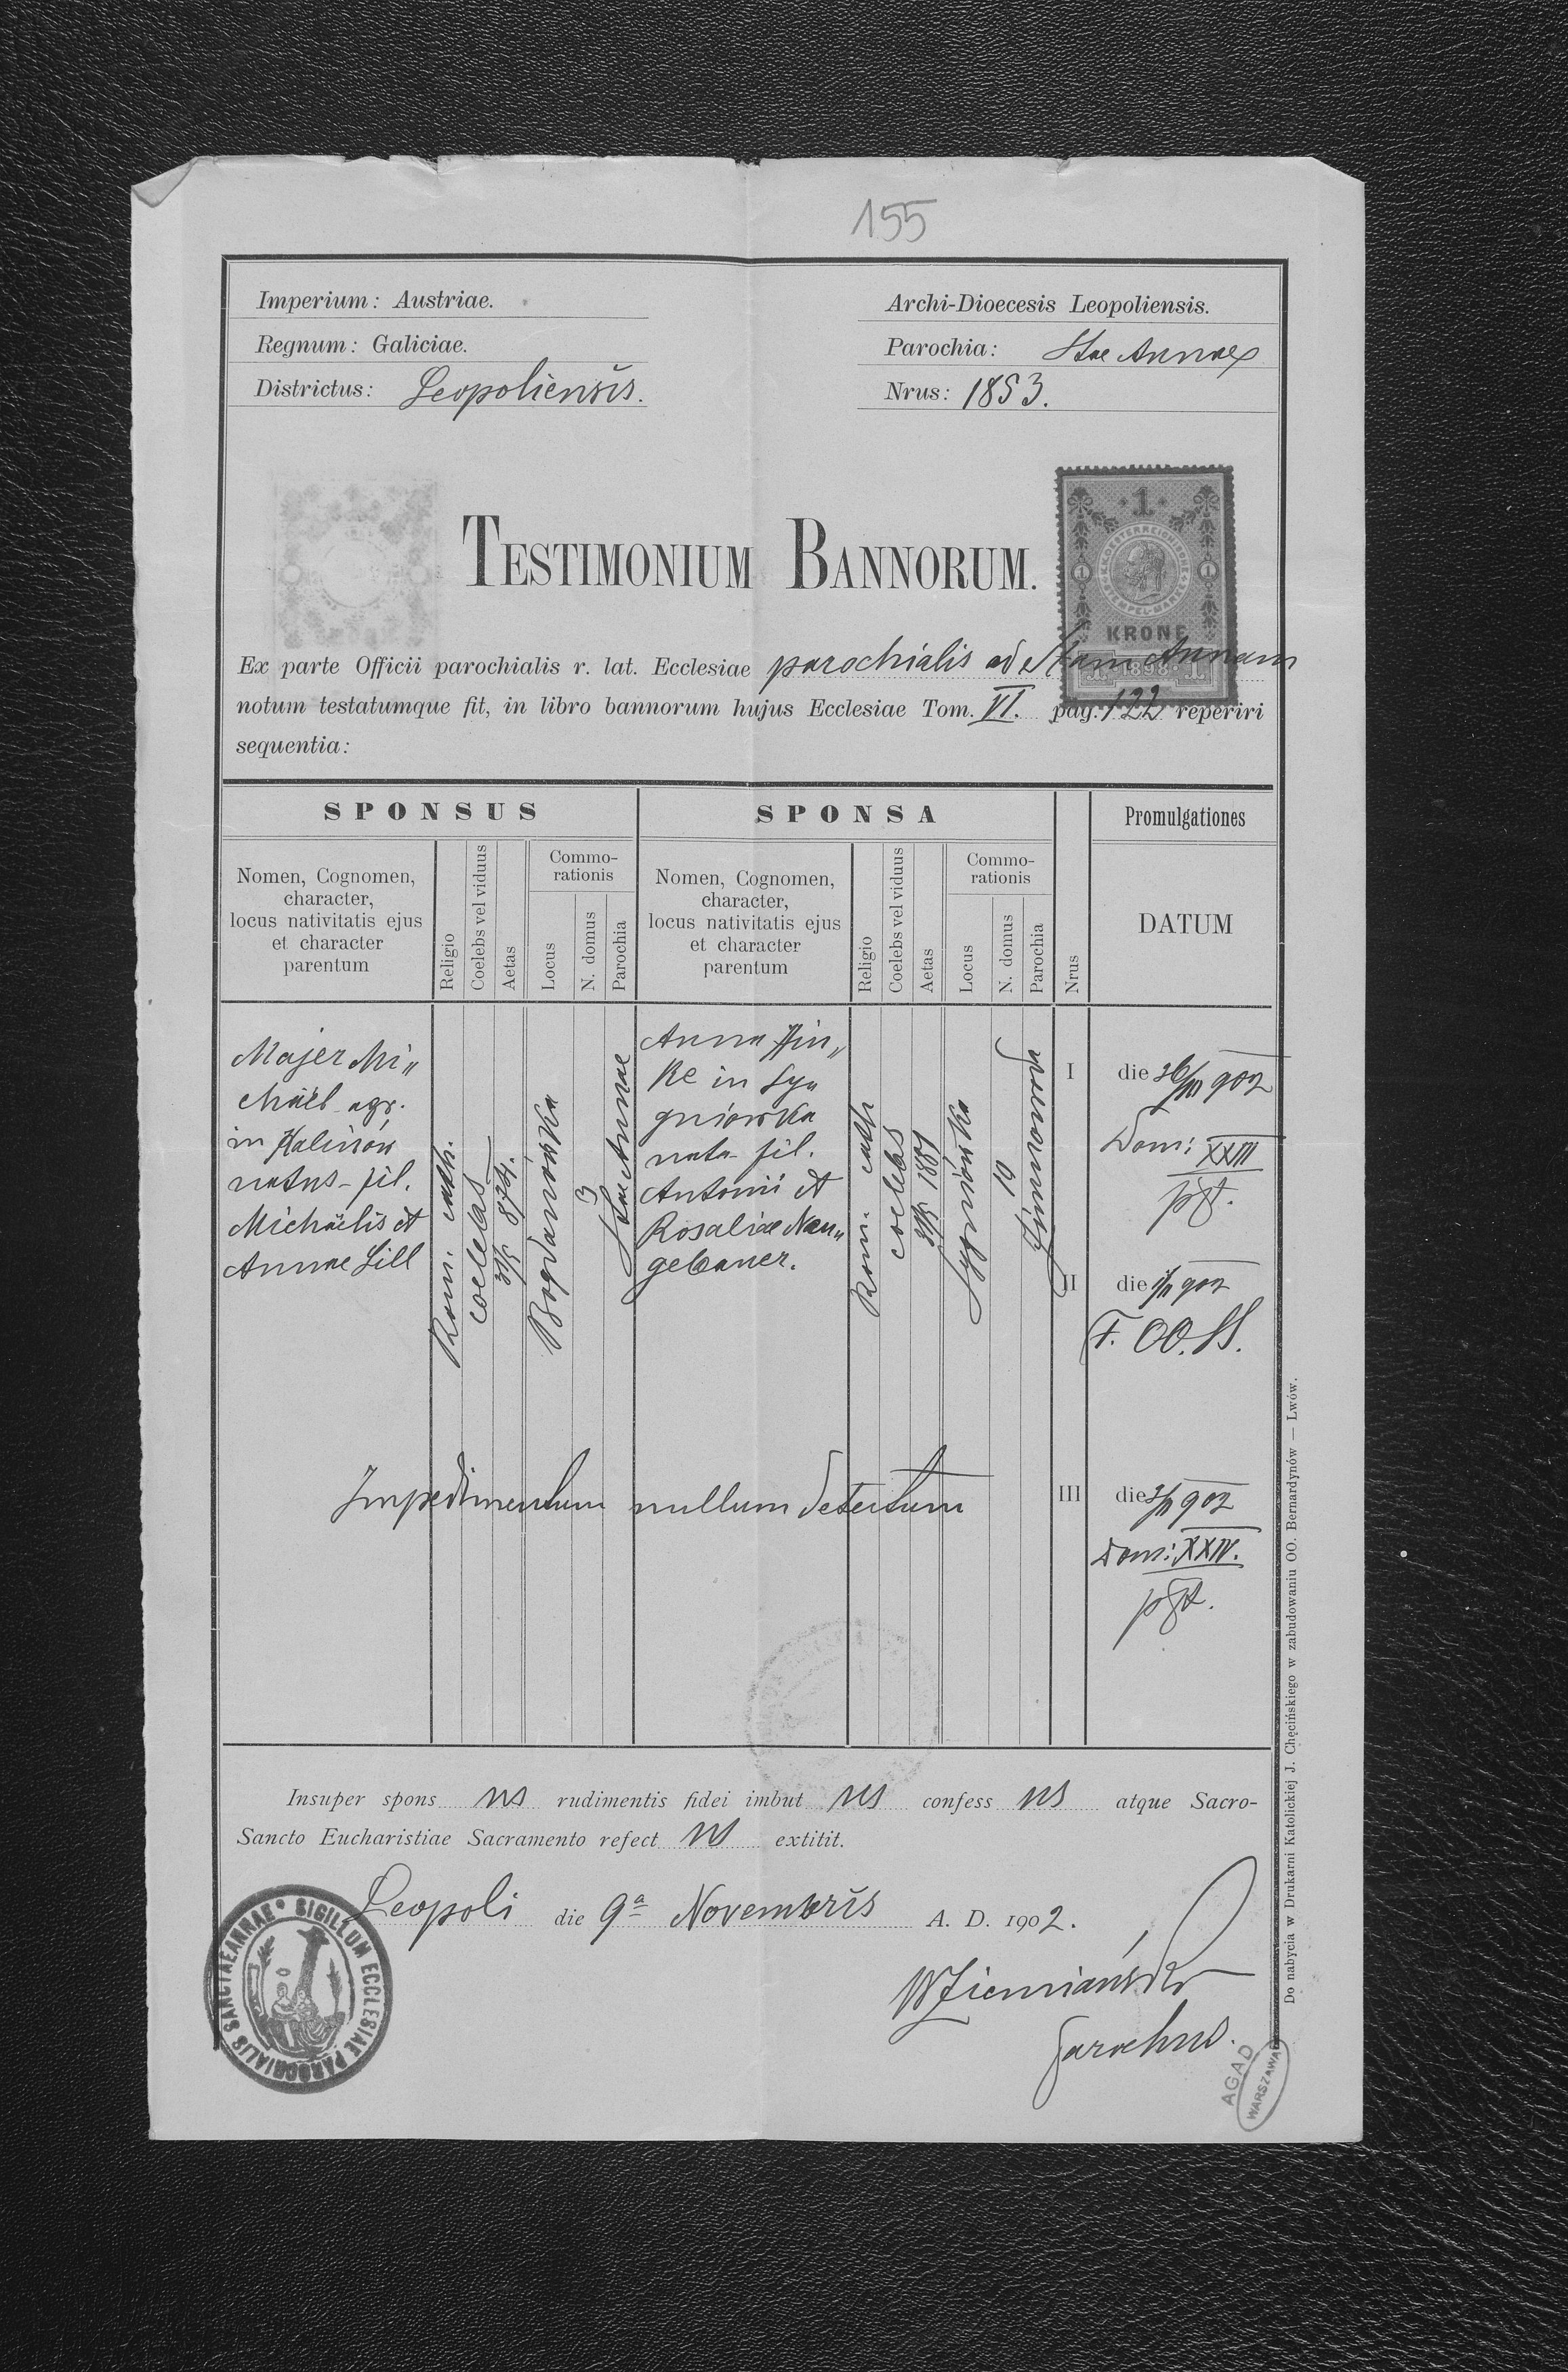 155
Imperium: Austriae.
Regnum: Galiciae.
Districtus: Leopoliensis.
Archi-Dioecesis Leopoliensis.
Parochia: Stae Annae
Nrus: 1853.
TESTIMONIUM BANNORUM.
1
KRONE
1898
Ex parte Officii parochialis r. lat. Ecclesiae parochialis ad Stam Annam
notum testatumque fit, in libro bannorum hujus Ecclesiae Tom. VI. pag. 122 reperiri
sequentia:
SPONSUS
Nomen, Cognomen,
character,
locus nativitatis ejus
et character
parentum
Religio
Coelebs vel viduus
Aetas
Commo-
rationis
Locus
N. domus
Parochia
SPONSA
Nomen, Cognomen,
character,
locus nativitatis ejus
et character
parentum
Religio
Coelebs vel viduus
Aetas
Commo-
rationis
Locus
N. domus
Parochia
Nrus
Promulgationes
DATUM
Majer Mi„
chaël agr.
in Kalinów
natus - fil.
Michaëlis et
Annae Lill
Rom. cath.
coelebs
874.
Bogdanówka
3
Stae Annae
Anna
Ke in Sy„
gniówka
nata fil.
Antonii et
Rosaliae Neu„
gebauer.
Rom. cath
coelebs
1881
Sygniówka
19
Zimnawoda
I die 26/10 902
Dom: XXIII
pgt.
II die 1/11 902
F. OO. SS.
Impedimentum nullum detectum
III die 2/11 902
Dom: XXIV.
pgt.
Insuper spons us rudimentis fidei imbut us confess us atque Sacro-
Sancto Eucharistiae Sacramento refect us extitit.
Leopoli die 9ª Novembris A. D. 1902.
WZiemiański
Parochus.
SIGILLUM ECCLESIAE PAROCHIALIS SANCTAE ANNAE
AGAD
WARSZAWA
Do nabycia w Drukarni Katolickiej J. Chęcińskiego w zabudowaniu OO. Bernardynów — Lwów.